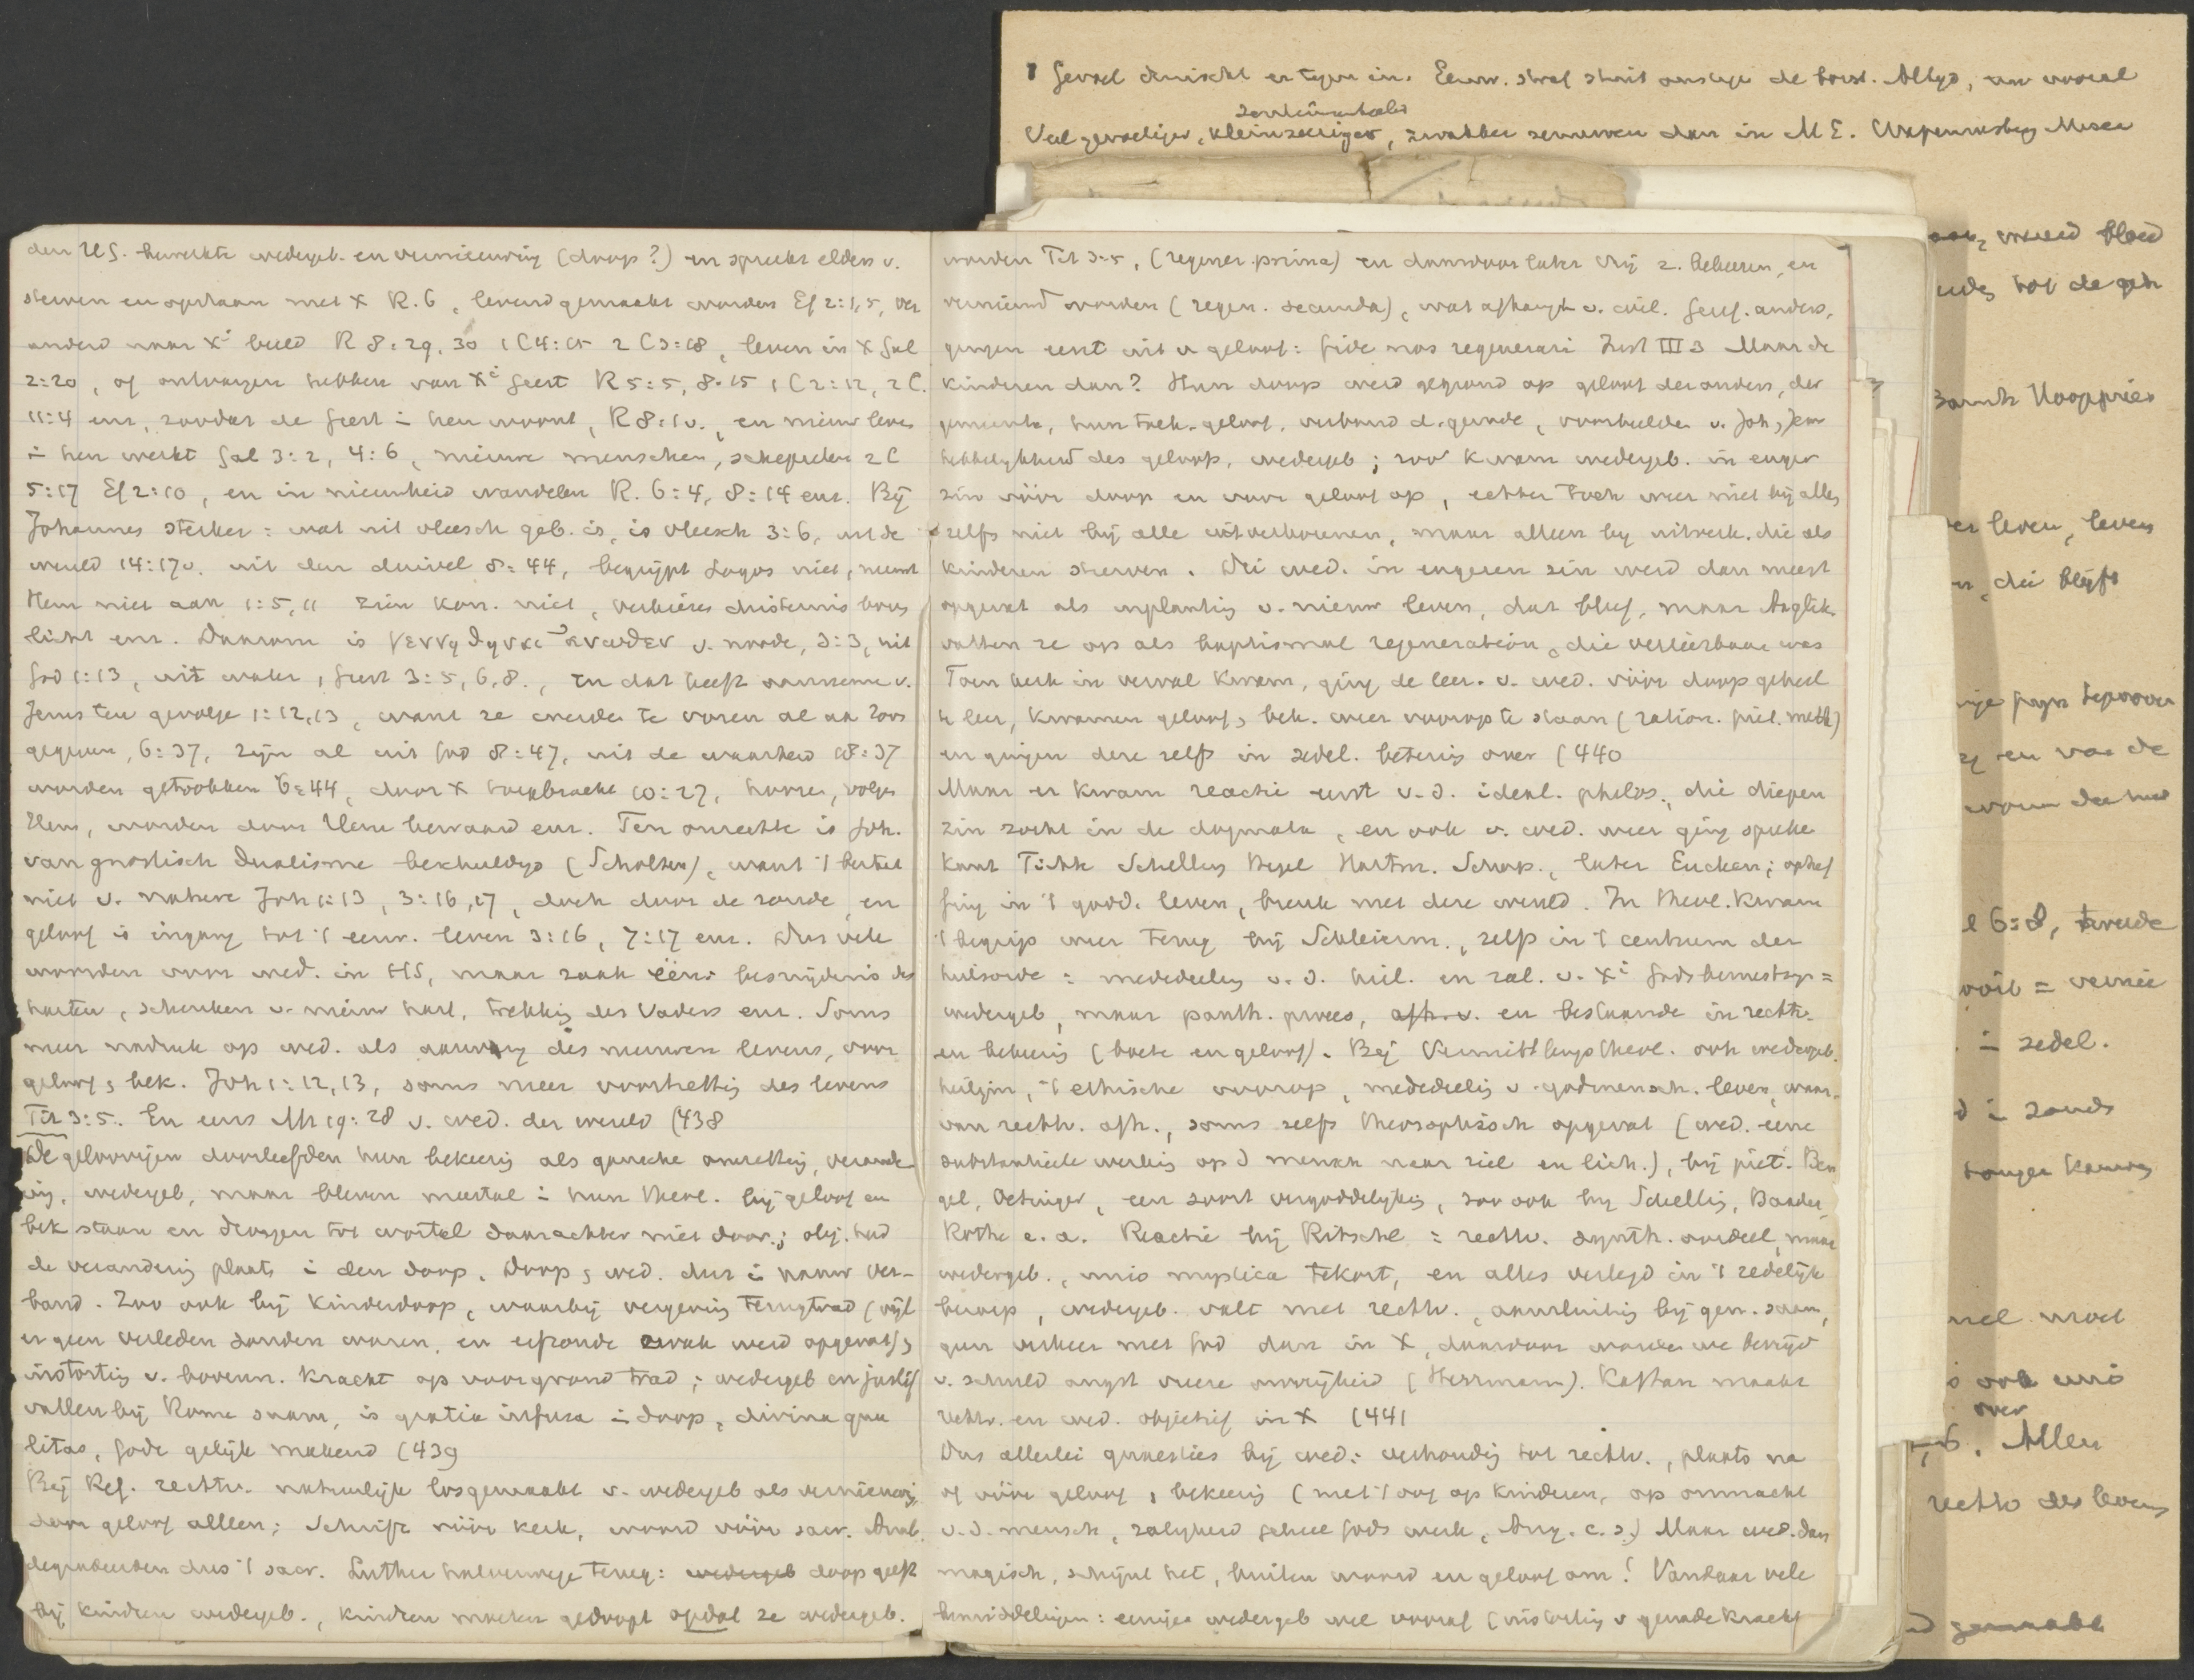 Gevoel druischt er tegen in. Eeuw. straf stuit ons tegen de borst. Altijd, en vooral
sentimenteeler
Veel gevoeliger, kleinzeeriger, zwakker zenuwen dan in M E.
den HG. bewerkte wedergeb. en vernieuwing (doop?) en spreekt elders v.
sterven en opstaan met X R. 6, levend gemaakt worden Ef 2:1,5, ver
anderd naar Xi beeld R 8:29.30 1 C 4:15 2 C 3:18, leven in X Gal
2:20, of ontvangen hebben van Xi geest R 5:5, 8:15 1 C 2:12, 2 C.
11:4 enz, zoodat de geest in hen woont, R 8:10., en nieuw leven
in hen werkt Gal 3:2, 4:6, nieuwe menschen, schepselen 2 C
5:17 Ef 2:10, en in nieuwheid wandelen R. 6:4, 8:14 enz. Bij
Johannes sterker: wat uit vleesch geb. is, is vleesch 3:6, uit de
wereld 14:17v. uit den duivel 8:44, begrijpt Logos niet, neemt
Hem niet aan 1:5,11 zien kon. niet, verkiezen duisternis boven
licht enz. Daarom is γεννηθηναι ἀνωθεν v. noode, 3:3, uit
God 1:13, uit water, Geest 3:5,6,8., en dat heeft aanneme v.
Jezus ten gevolge 1:12,13, want ze werden te voren al aan Zoon
gegeven, 6:37, zijn al uit God 8:47, uit de waarheid 18:37
worden getrokken 6:44, door X toegebracht 10:27, hooren, volgen
Hem, worden door Hem bewaard enz. Ten onrechte is Joh.
van gnostisch dualisme beschuldigd (Scholten), want 't bestaat
niet v. nature Joh 1:13, 3:16,17, doch door de zonde, en
geloof is ingang tot 't eeuw. leven 3:16, 7:17 enz. Dus vele
woorden voor wed. in HS, maar zaak één: besnijdenis des
harten, schenken v. nieuw hart, trekking des Vaders enz. Soms
meer nadruk op wed. als aanvang des nieuwen levens, voor
geloof, bek. Joh 1:12,13, soms meer voortzetting des levens
Tit 3:5. En eens Mt 19:28 v. wed. der wereld (438
De geloovigen doorleefden hun bekeering als gansche omzetting, verande
ring, wedergeb, maar bleven meestal in hun theol. bij geloof en
bek staan en drongen tot wortel daarachter niet door; obj. had
de verandering plaats in den doop. Doop, wed. dus in nauw ver-
band. Zoo ook bij kinderdoop, waarbij vergeving terugtrad (wijl
er geen verleden zonden waren, en erfzonde zwak werd opgevat),
instorting v. bovenn. kracht op voorgrond trad; wedergeb en justif
vallen bij Rome saam, is gratia infusa in doop, divina qua
litas, Gode gelijk makend (439
Bij Ref. rechtv. natuurlijk losgemaakt v. wedergeb als vernieuwing,
door geloof alleen; Schrift vóór kerk, woord vóór sacr. Anab.
degradeerden dus 't sacr. Luther halverwege terug: wedergeb doop geeft
bij kindren wedergeb., kindren moeten gedoopt opdat ze wedergeb.
worden Tit 3:5, (regener. prima) en daardoor later vrij z. bekeeren, en
vernieuwd worden (regen. secunda), wat afhangt v. wil. Geref. anders,
gingen eerst uit v geloof: fide nos regenerari Inst III 3 Maar de
kinderen dan? Hun doop werd gegrond op geloof der anders, der
gemeente, hun toek. geloof, verbond d. genade, voorbeelden v. Joh, Jer
hebbelijkheid des geloofs, wedergeb; zoo kwam wedergeb. in enger
zin vóór doop en voor geloof op, echter toch weer niet bij allen
zelfs niet bij alle uitverkorenen, maar alleen bij uitverk. die als
kinderen sterven. Die wed. in engeren zin werd dan meest
opgevat als inplanting v. nieuw leven, dat bleef, maar Anglik.
vatten ze op als baptismal regeneration, die verliesbaar was
Toen kerk in verval kwam, ging de leer. v. wed. vóór doop geheel
te loor, kwamen geloof, bek. weer voorop te staan (ration. piet. meth)
en gingen deze zelfs in zedel. betering over (440
Maar er kwam reactie eerst v. d. ideal. philos., die diepen
zin zocht in de dogmata, en ook v. wed. weer ging spreken
Kant Fichte Schelling Hegel Hartm. Schop., later Eucken; opheffing
fing in 't godd. leven, breuk met deze wereld. In theol. kwam
't begrip weer terug bij Schleierm., zelfs in 't centrum der
heilsorde: mededeeling v. d. heil. en zal. v. Xi Godsbewustzyn =
wedergeb, maar panth. proces, afh. v. en bestaande in rechtv.
en bekeering (boete en geloof). Bij Vermittlungstheol. ook wedergeb.
heiligm, 't ethische voorop, mededeeling v. godmensch. leven, waar-
van rechtv. afh., soms zelfs theosophisch opgevat (wed. eene
substantieele werking op d mensch naar ziel en lich.), bij piet. Ben
gel, Oetinger, een soort vergoddelyking, zoo ook bij Schelling, Baader,
Rothe e. a. Reactie bij Ritschl: rechtv. synth. oordeel, maar
wedergeb., unio mystica tekort, en alles verlegd in 't zedelijk
beroep, wedergeb. valt met rechtv., aansluiting bij gem. saam,
geen verkeer met God dan in X, daardoor worden we bevrijd
v. schuld angst vreeze onvrijheid (Herrmann). Kaftan maakt
rechtv. en wed. objectief in X (441
Dus allerlei quaesties bij wed: verhouding tot rechtv., plaats na
of vóór geloof, bekeering (met 't oog op kinderen, op onmacht
v. d. mensch, zaligheid geheel Gods werk, Aug. c. s.) Maar wed. dan
magisch, schijnt het, buiten woord en geloof om! Vandaar vele
bemiddelingen: eenigen wedergeb wel vooraf (instorting v genade kracht
bloed
er leven, leven
die blijft
6:8, tweede
= vernie
zedel.
ook unio
over
Allen
rechtv des levens
gemaakt